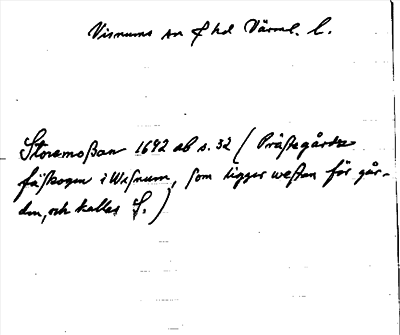 Visnums sn & hd Värml. l.
Storemoßan 1692 ab s. 32 (Prästegårdz
fäskogen i Wisnum, som ligger westan för går-
den, och kallas S.)